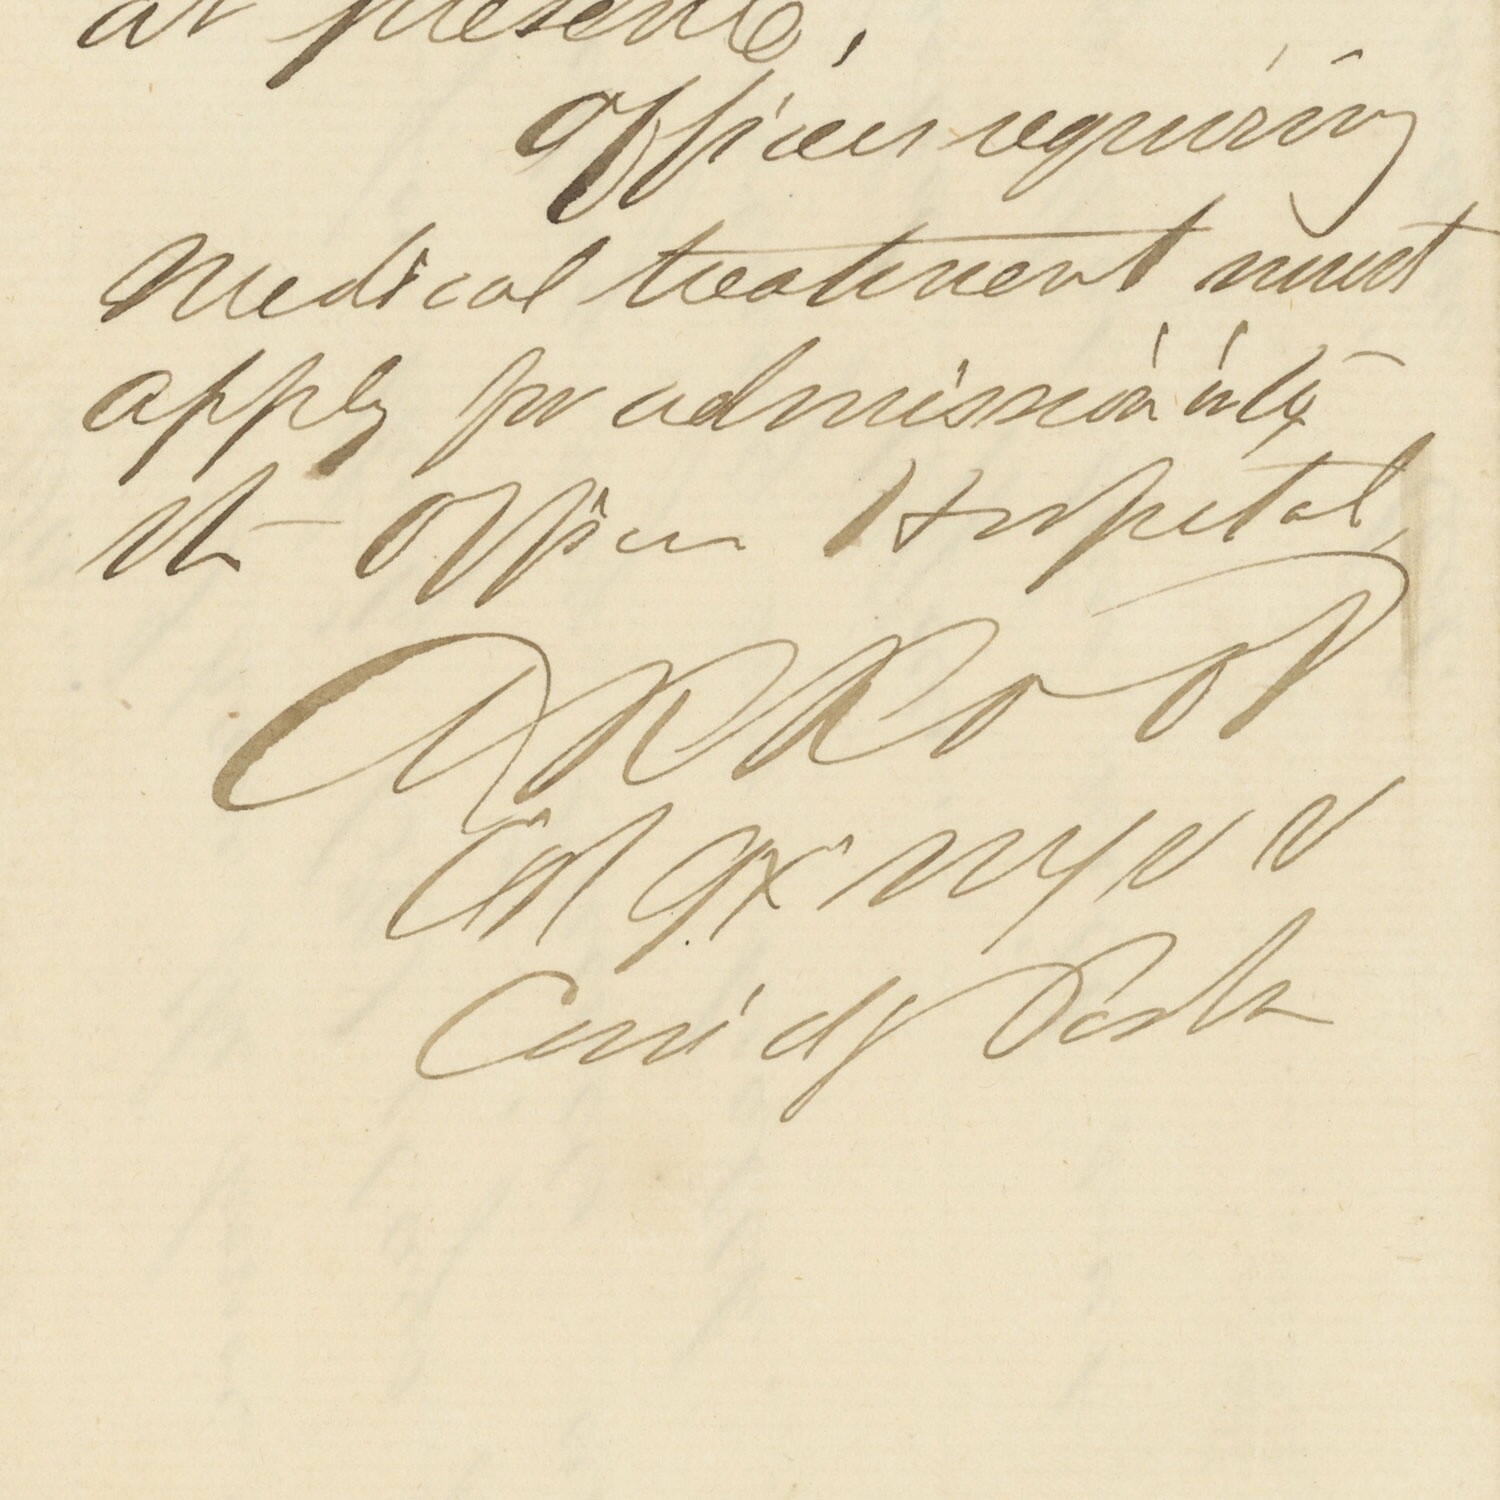 at present,
Officers requiring
Medical treatment must
apply for admission into
the Officers Hospital,
A R Root
Col 94" N Y V V
Com'dg Parole